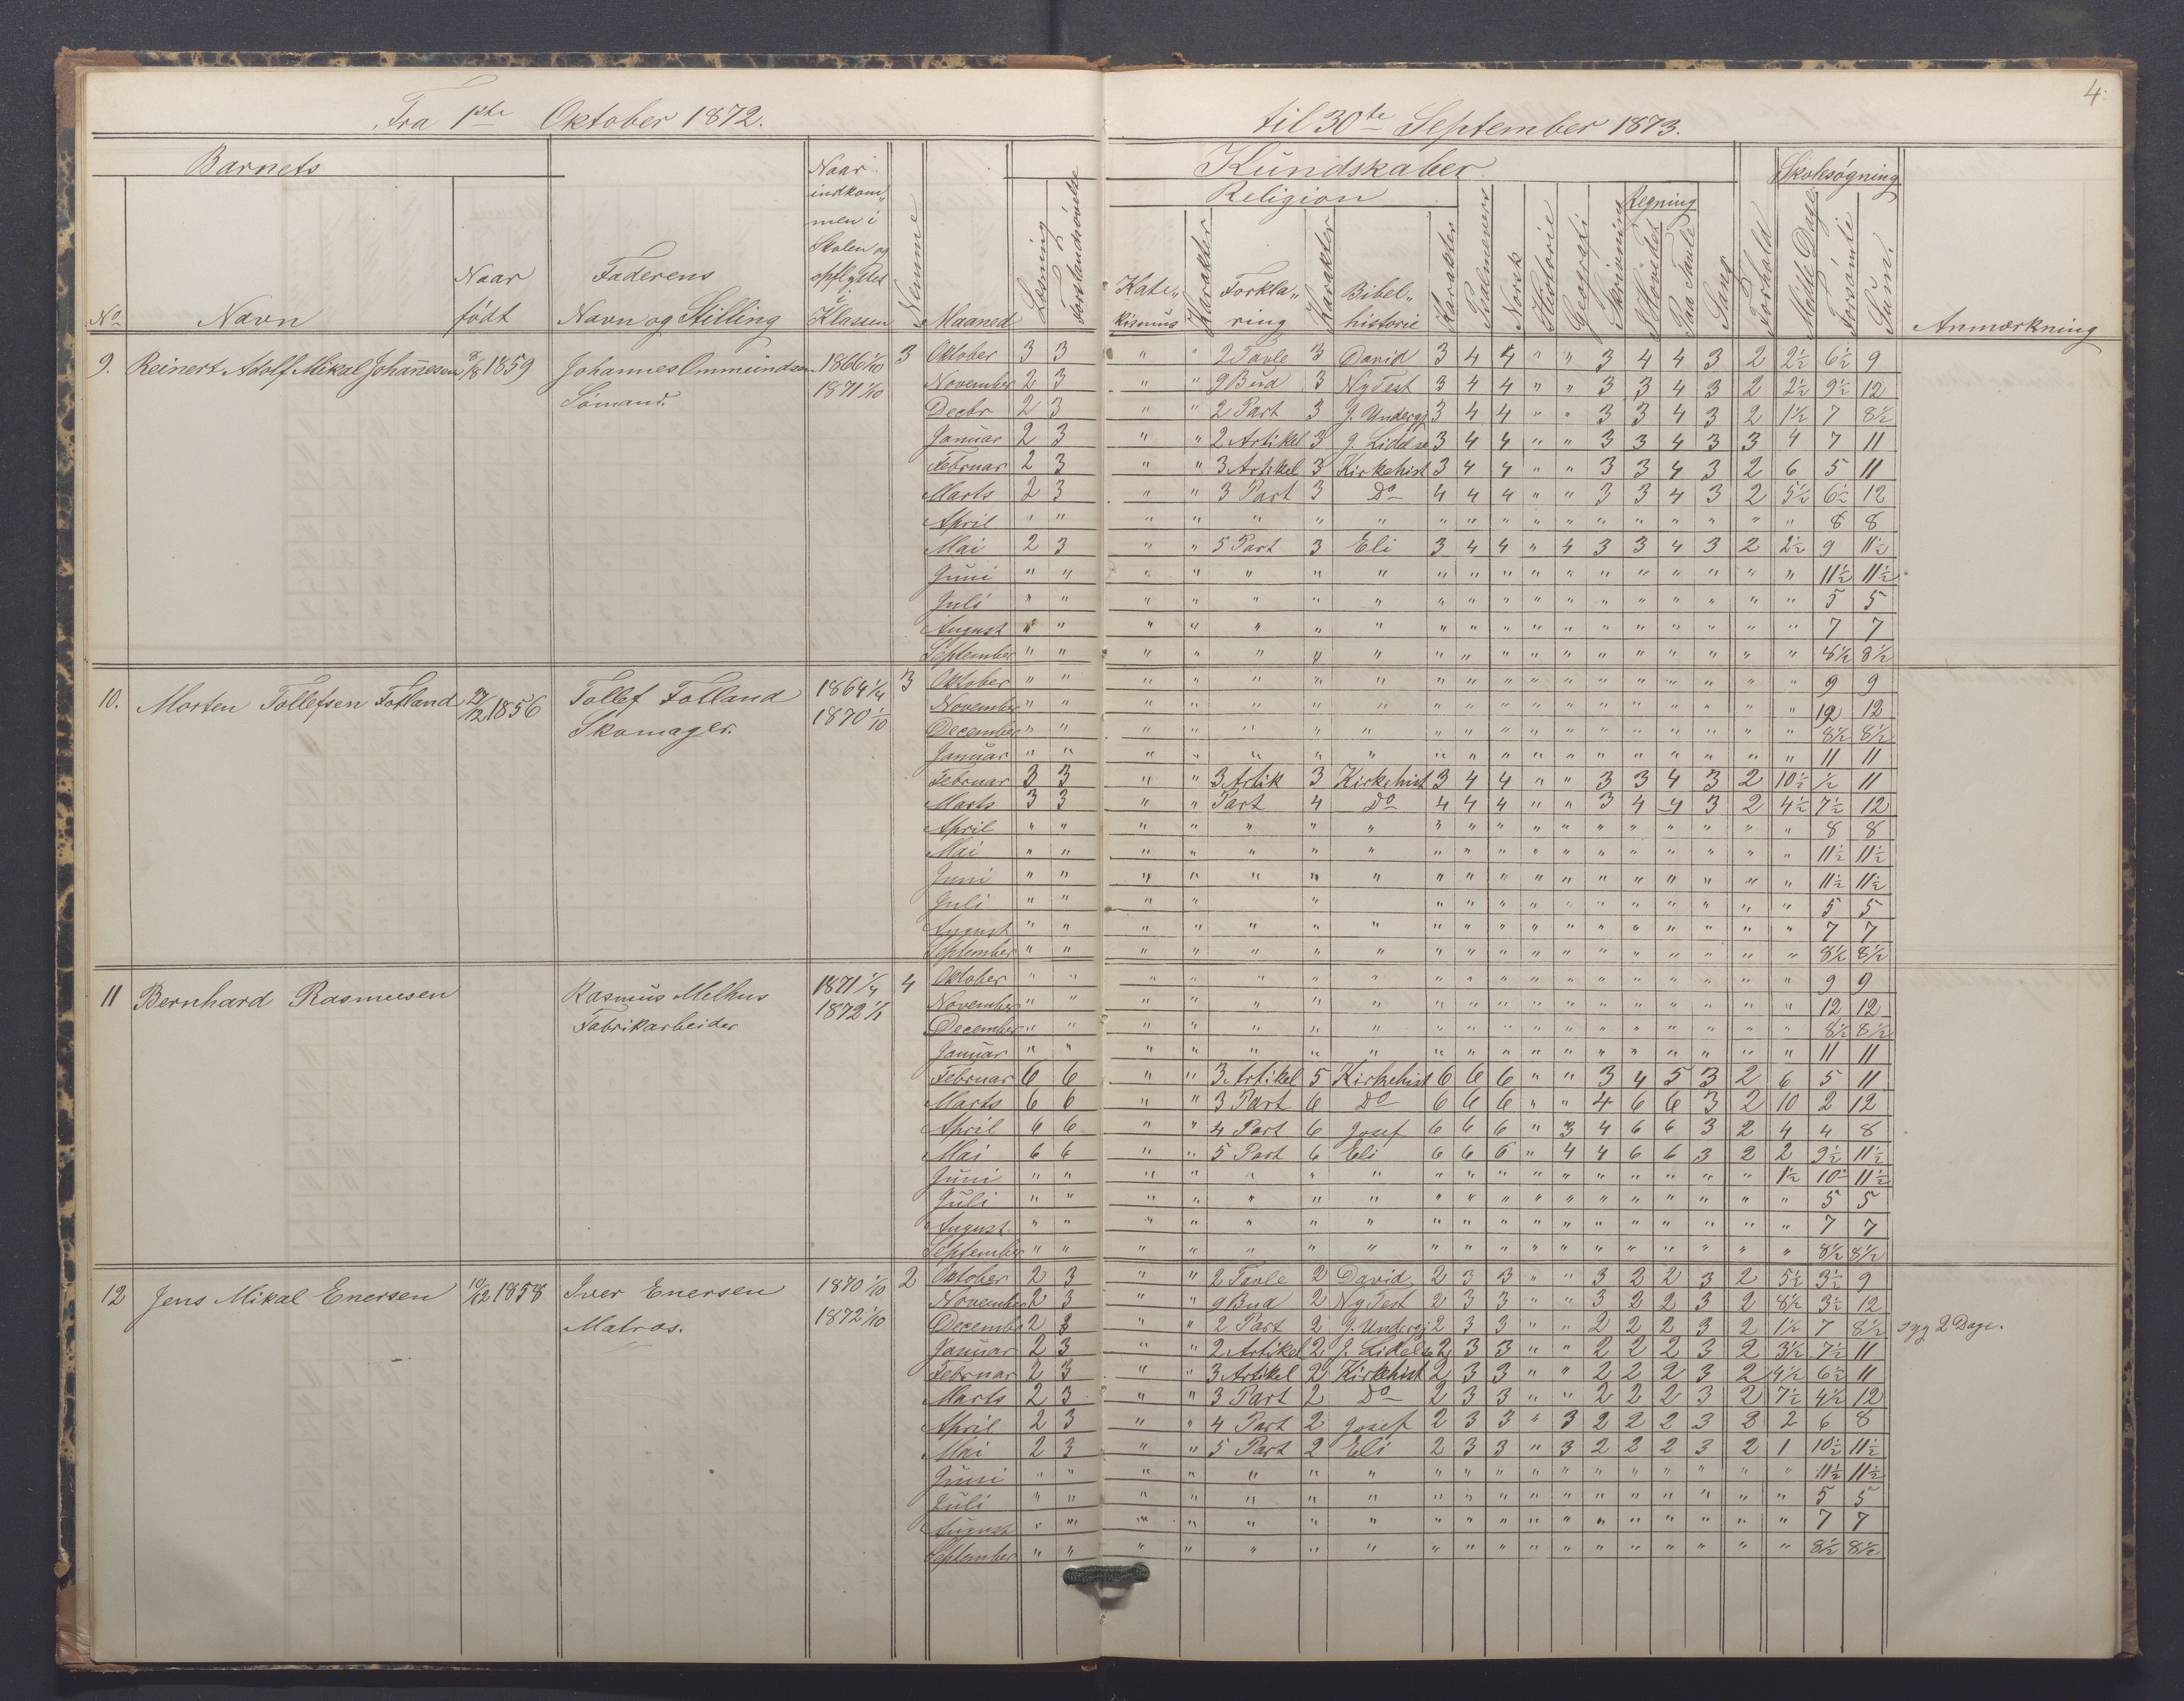 4.
Fra 1ste Oktober 1872. til 30te September 1873.
Barnets Kundskaber Skolesøgning
Religion Regning
No Navn Naar født Faderens Navn og Stilling Naar indkom„ men i Skolen og opflyttet i Klassen Nemme Maaned Læsning Forstandsøvelse Kate„ kismus Karakter Forkla„ ring Karakter Bibel„ historie Karakter Psalmevers Norsk Historie Geografi Skrivning I Hovedet Paa Tavle Sang Forhold Mødte Dage Forsømte Sum. Anmærkning
9. Reinert Adolf Mikal Johannesen 8/8 1859 Johannes Ommundsen 1866 1/10 3 Oktober 3 3 " " 2 Tavle 3 David 3 4 4 " " 3 4 4 3 2 2½ 6½ 9
Sømand. 1871 1/10 November 2 3 " " 9 Bud 3 Ny Test 3 4 4 " " 3 3 4 3 2 2½ 9½ 12
Decbr 2 3 " " 2 Part 3 J. Undergj 3 4 4 " " 3 3 4 3 2 1½ 7 8½
Januar 2 3 " " 2 Artikel 3 J. Lidelse 3 4 4 " " 3 3 4 3 3 4 7 11
Februar 2 3 " " 3 Artikel 3 Kirkehist 3 4 4 " " 3 3 4 3 2 6 5 11
Marts 2 3 " " 3 Part 3 Do 4 4 4 " " 3 3 4 3 2 5½ 6½ 12
April " " " " " " " " " " " " " " " " " " " 8 8
Mai 2 3 " " 5 Part 3 Eli 3 4 4 " 4 3 3 4 3 2 2½ 9 11½
Juni " " " " " " " " " " " " " " " " " " " 11½ 11½
Juli " " " " " " " " " " " " " " " " " " " 5 5
August " " " " " " " " " " " " " " " " " " " 7 7
September " " " " " " " " " " " " " " " " " " " 8½ 8½
10. Morten Tollefsen Fotland 27/12 1856 Tollef Fotland 1864 1/4 3 Oktober " " " " " " " " " " " " " " " " " " " 9 9
Skomager. 1870 1/10 November " " " " " " " " " " " " " " " " " " " 12 12
December " " " " " " " " " " " " " " " " " " " 8½ 8½
Januar " " " " " " " " " " " " " " " " " " " 11 11
Februar 3 3 " " 3 Artik 3 Kirkehist 3 4 4 " " 3 3 4 3 2 10½ ½ 11
Marts 3 3 " " Part 4 Do 4 4 4 " " 3 4 4 3 2 4½ 7½ 12
April " " " " " " " " " " " " " " " " " " " 8 8
Mai " " " " " " " " " " " " " " " " " " " 11½ 11½
Juni " " " " " " " " " " " " " " " " " " " 11½ 11½
Juli " " " " " " " " " " " " " " " " " 5 5
August " " " " " " " " " " " " " " " " " " " 7 7
September " " " " " " " " " " " " " " " " " " " 8½ 8½
11 Bernhard Rasmusen Rasmus Melhus 1871 1/4 4 Oktober " " " " " " " " " " " " " " " " " " " 9 9
Fabrikarbeider 1872 1/1 November " " " " " " " " " " " " " " " " " " " 12 12
December " " " " " " " " " " " " " " " " " " " 8½ 8½
Januar " " " " " " " " " " " " " " " " " " " 11 11
Februar 6 6 " " 3 Artikel 5 Kirkehist 6 6 6 " " 3 4 5 3 2 6 5 11
Marts 6 6 " " 3 Part 6 Do 6 6 6 " " 4 6 6 3 2 10 2 12
April 6 6 " " 4 Part 6 Josef 6 6 6 " 3 4 6 6 3 2 4 4 8
Mai 6 6 " " 5 Part 6 Eli 6 6 6 " 4 4 6 6 3 2 2 9½ 11½
Juni " " " " " " " " " " " " " " " " " " 1½ 10 11½
Juli " " " " " " " " " " " " " " " " " " " 5 5
August " " " " " " " " " " " " " " " " " " " 7 7
September " " " " " " " " " " " " " " " " " " " 8½ 8½
12 Jens Mikal Enersen 10/12 1858 Iver Enersen 1870 1/10 2 Oktober 2 3 " " 2 Tavle 2 David 2 3 3 " " 3 2 2 3 2 5½ 3½ 9
Matros. 1872 1/10 November 2 3 " " 9 Bud 2 Ny Test 2 3 3 " " 3 2 2 3 2 8½ 3½ 12
December 2 3 " " 2 Part 2 J. Undergj 2 3 3 " " 2 2 2 3 2 1½ 7 8½ syg 2 Dage.
Januar 2 3 " " 2 Artikel 2 J. Lidelse 2 3 3 " " 2 2 2 3 2 3½ 7½ 11
Februar 2 3 " " 3 Artikel 2 Kirkehist 2 3 3 " " 2 2 2 3 2 4½ 6½ 11
Marts 2 3 " " 3 Part 2 Do 2 3 3 " " 2 2 2 3 2 7½ 4½ 12
April 2 3 " " 4 Part 2 Josef 2 3 3 " 3 2 2 2 3 2 2 6 8
Mai 2 3 " " 5 Part 2 Eli 2 3 3 " 3 2 2 2 3 2 1 10½ 11½
Juni " " " " " " " " " " " " " " " " " " " 11½ 11½
Juli " " " " " " " " " " " " " " " " " " " 5 5
August " " " " " " " " " " " " " " " " " " " 7 7
September " " " " " " " " " " " " " " " " " " " 8½ 8½